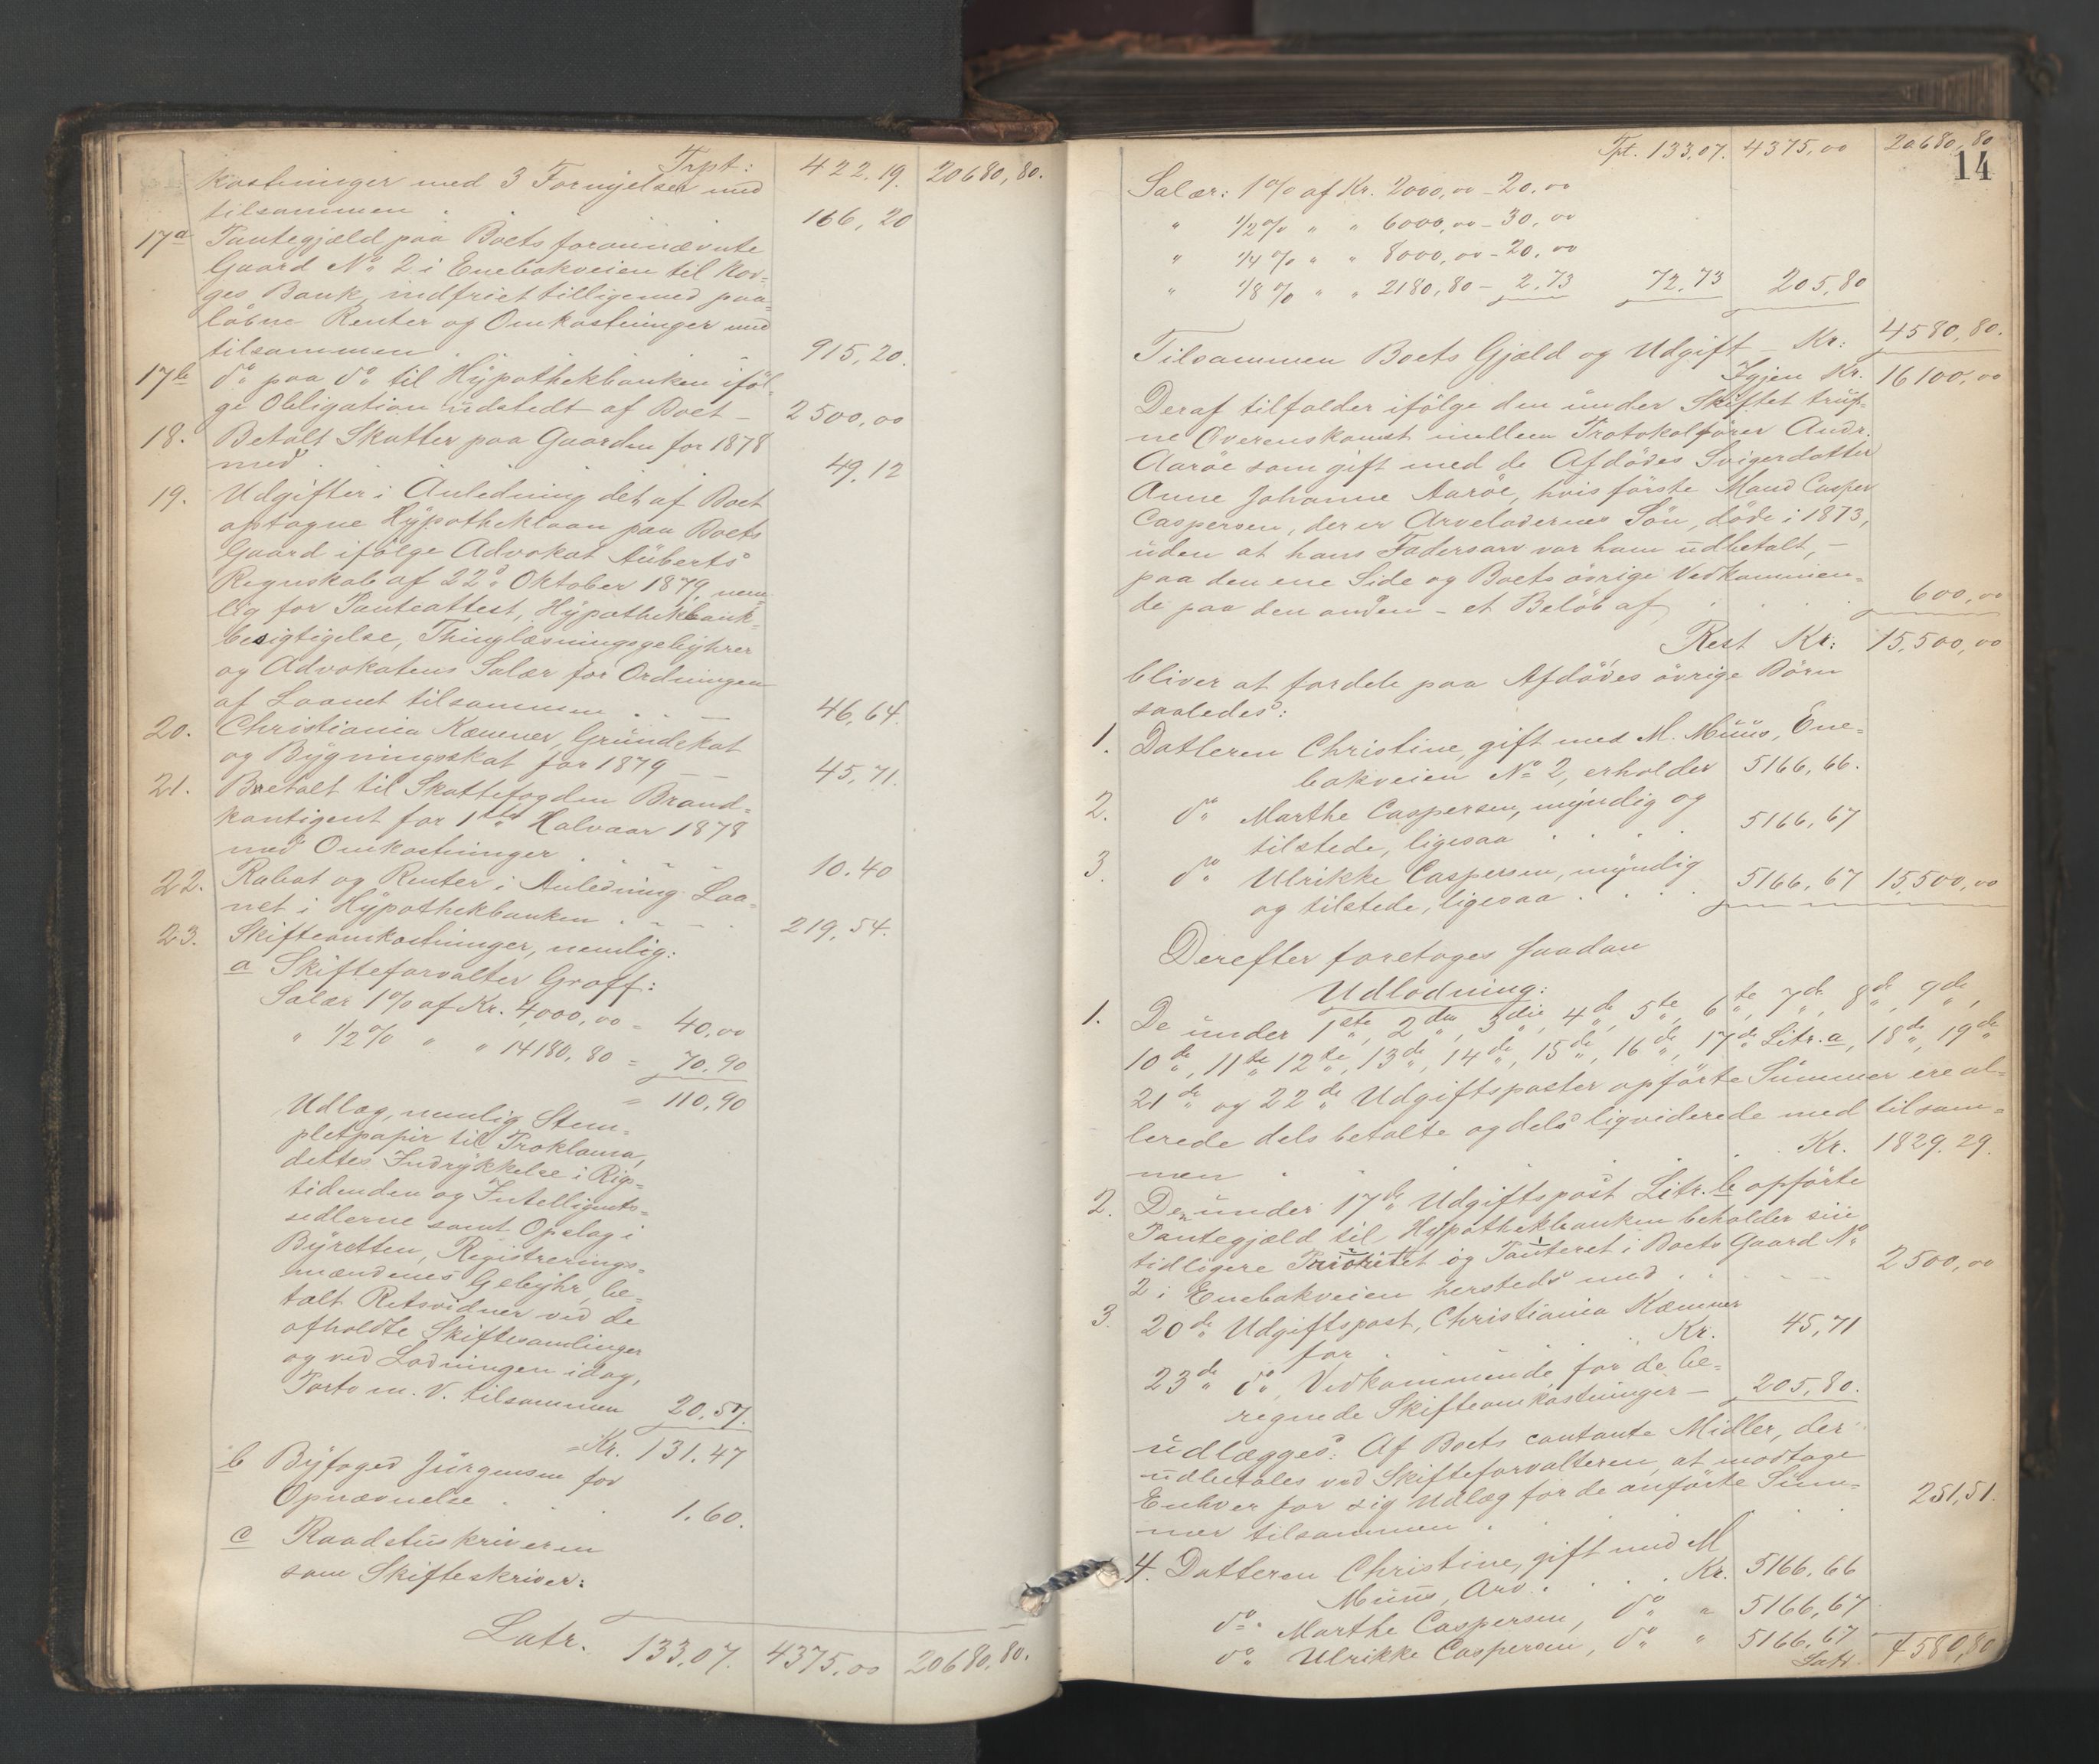 Trpt: 422.19. 20680,80.
kostninger med 3 Fornyelser med
tilsammen . 166,20
17a Pantegjæld paa Boets forannævnte
Gaard No 2 i Enebakveien til Nor-
ges Bank, indfriet tilligemed paa-
løbne Renter og Omkostninger med
tilsammen . 915,20.
17b do paa do til Hypothekbanken iføl-
ge Obligation udstedt af Boet - 2500,00
18. Betalt Skatter paa Gaarden for 1878
med . . . . . 49,12
19. Udgifter i Anledning det af Boet
optagne Hypotheklaan paa Boets
Gaard ifølge Advokat Auberts
Regnskab af 22de Oktober 1879, nem-
lig for Panteattest, Hypothekbank-
besigtigelse, Thinglæsningsgebyhrer
og Advokatens Salær for Ordningen
af Laanet tilsammen . . 46,64.
20. Christiania Kæmner, Grundskat
og Bygningsskat for 1879 - - 45,71.
21. Betalt til Skattefogden Brand-
kontigent for 1ste Halvaar 1878
med Omkostninger . . . 10.40
22. Rabat og Renter i Anledning Laa-
net i Hypothekbanken . . 219,54.
23. Skifteomkostninger, nemlig:
a Skifteforvalter Graff:
Salær 1% af Kr. 4,000,00 = 40,00
" 1/2% " " 14180,80 = 70,90
= 110,90
Udlæg, nemlig Stem-
pletpapir til Proklama,
dettes Indrykkelse i Rigs-
tidenden og Intelligents-
sedlerne samt Opslag i
Byretten, Registrerings-
mændenes Gebyhr, be-
talt Retsvidner ved de
afholdte Skiftesamlinger
og ved Lodningen idag,
Porto m. V. tilsammen 20,57.
=Kr. 131.47
b Byfoged Jürgensen for
Opnævnelse . . . 1.60.
c Raadstuskriveren
som Skifteskriver:
Latr. 133,07. 4375,00 20680,80.
14
Tpt. 133,07. 4375,00 20680,80
Salær: 1% af Kr. 2000,00 - 20,00
" 1/2% " " 6000,00 - 30,00
" 1/4% " " 8000,00 - 20,00
" 1/8% " " 2180,80 - 2,73 72,73 205,80
Tilsammen Boets Gjæld og Udgift - Kr: 4580,80.
Igjen Kr. 16100,00
Deraf tilfalder ifølge den under Skiftet truf-
ne Overenskomst mellem Protokolfører Andr.
Aarøe som gift med de Afdødes Svigerdatter
Anne Johanne Aarøe, hvis første Mand Casper
Caspersen, der er Arveladernes Søn, døde i 1873,
uden at hans Fædrearv var ham udbetalt, -
paa den ene Side og Boets øvrige Vedkommen-
de paa den anden - et Beløb af . . . 600,00
Rest Kr: 15,500,00
bliver at fordele paa Afdødes øvrige Børn
saaledes:
1. Datteren Christine, gift med M. Muus, Ene-
bakveien No 2, erholder 5166,66.
2. do Marthe Caspersen, myndig og
tilstede, ligesaa . . . . 5166,67
3. do Ulrikke Caspersen, myndig
og tilstede, ligesaa . . . 5166,67 15,500,00
Derefter foretoges saadan
Udlodning:
1. De under 1ste, 2den, 3die, 4de, 5te, 6te, 7de, 8de, 9de,
10de, 11te, 12te, 13de, 14de, 15de, 16de, 17de Litr. a, 18de, 19de
21de og 22de Udgiftsposter opførte Summer ere al-
lerede dels betalte og dels liqviderede med tilsam-
men . . . . Kr. 1829.29.
2. Den under 17de Udgiftspost Litr. b opførte
Pantegjæld til Hypothekbanken beholder sin
tidligere Prioritet og Panteret i Boets Gaard No
2 i Enebakveien hersteds med . . . 2500,00
3. 20de Udgiftspost, Christiania Kæmner
for . . . Kr. 45,71
23de do, Vedkommende for de be-
regnede Skifteomkostninger - 205,80.
udlægges: Af Boets contante Midler, der
udbetales ved Skifteforvalteren, at modtage
Enhver for sig Udlæg for de anførte Sum-
mer tilsammen . . . 251,51.
4. Datteren Christine, gift med M
Muus, Arv . . . Kr. 5166,66
do Marthe Caspersen, do " 5166,67
do Ulrikke Caspersen, do " 5166,67
Latr. 4580,80